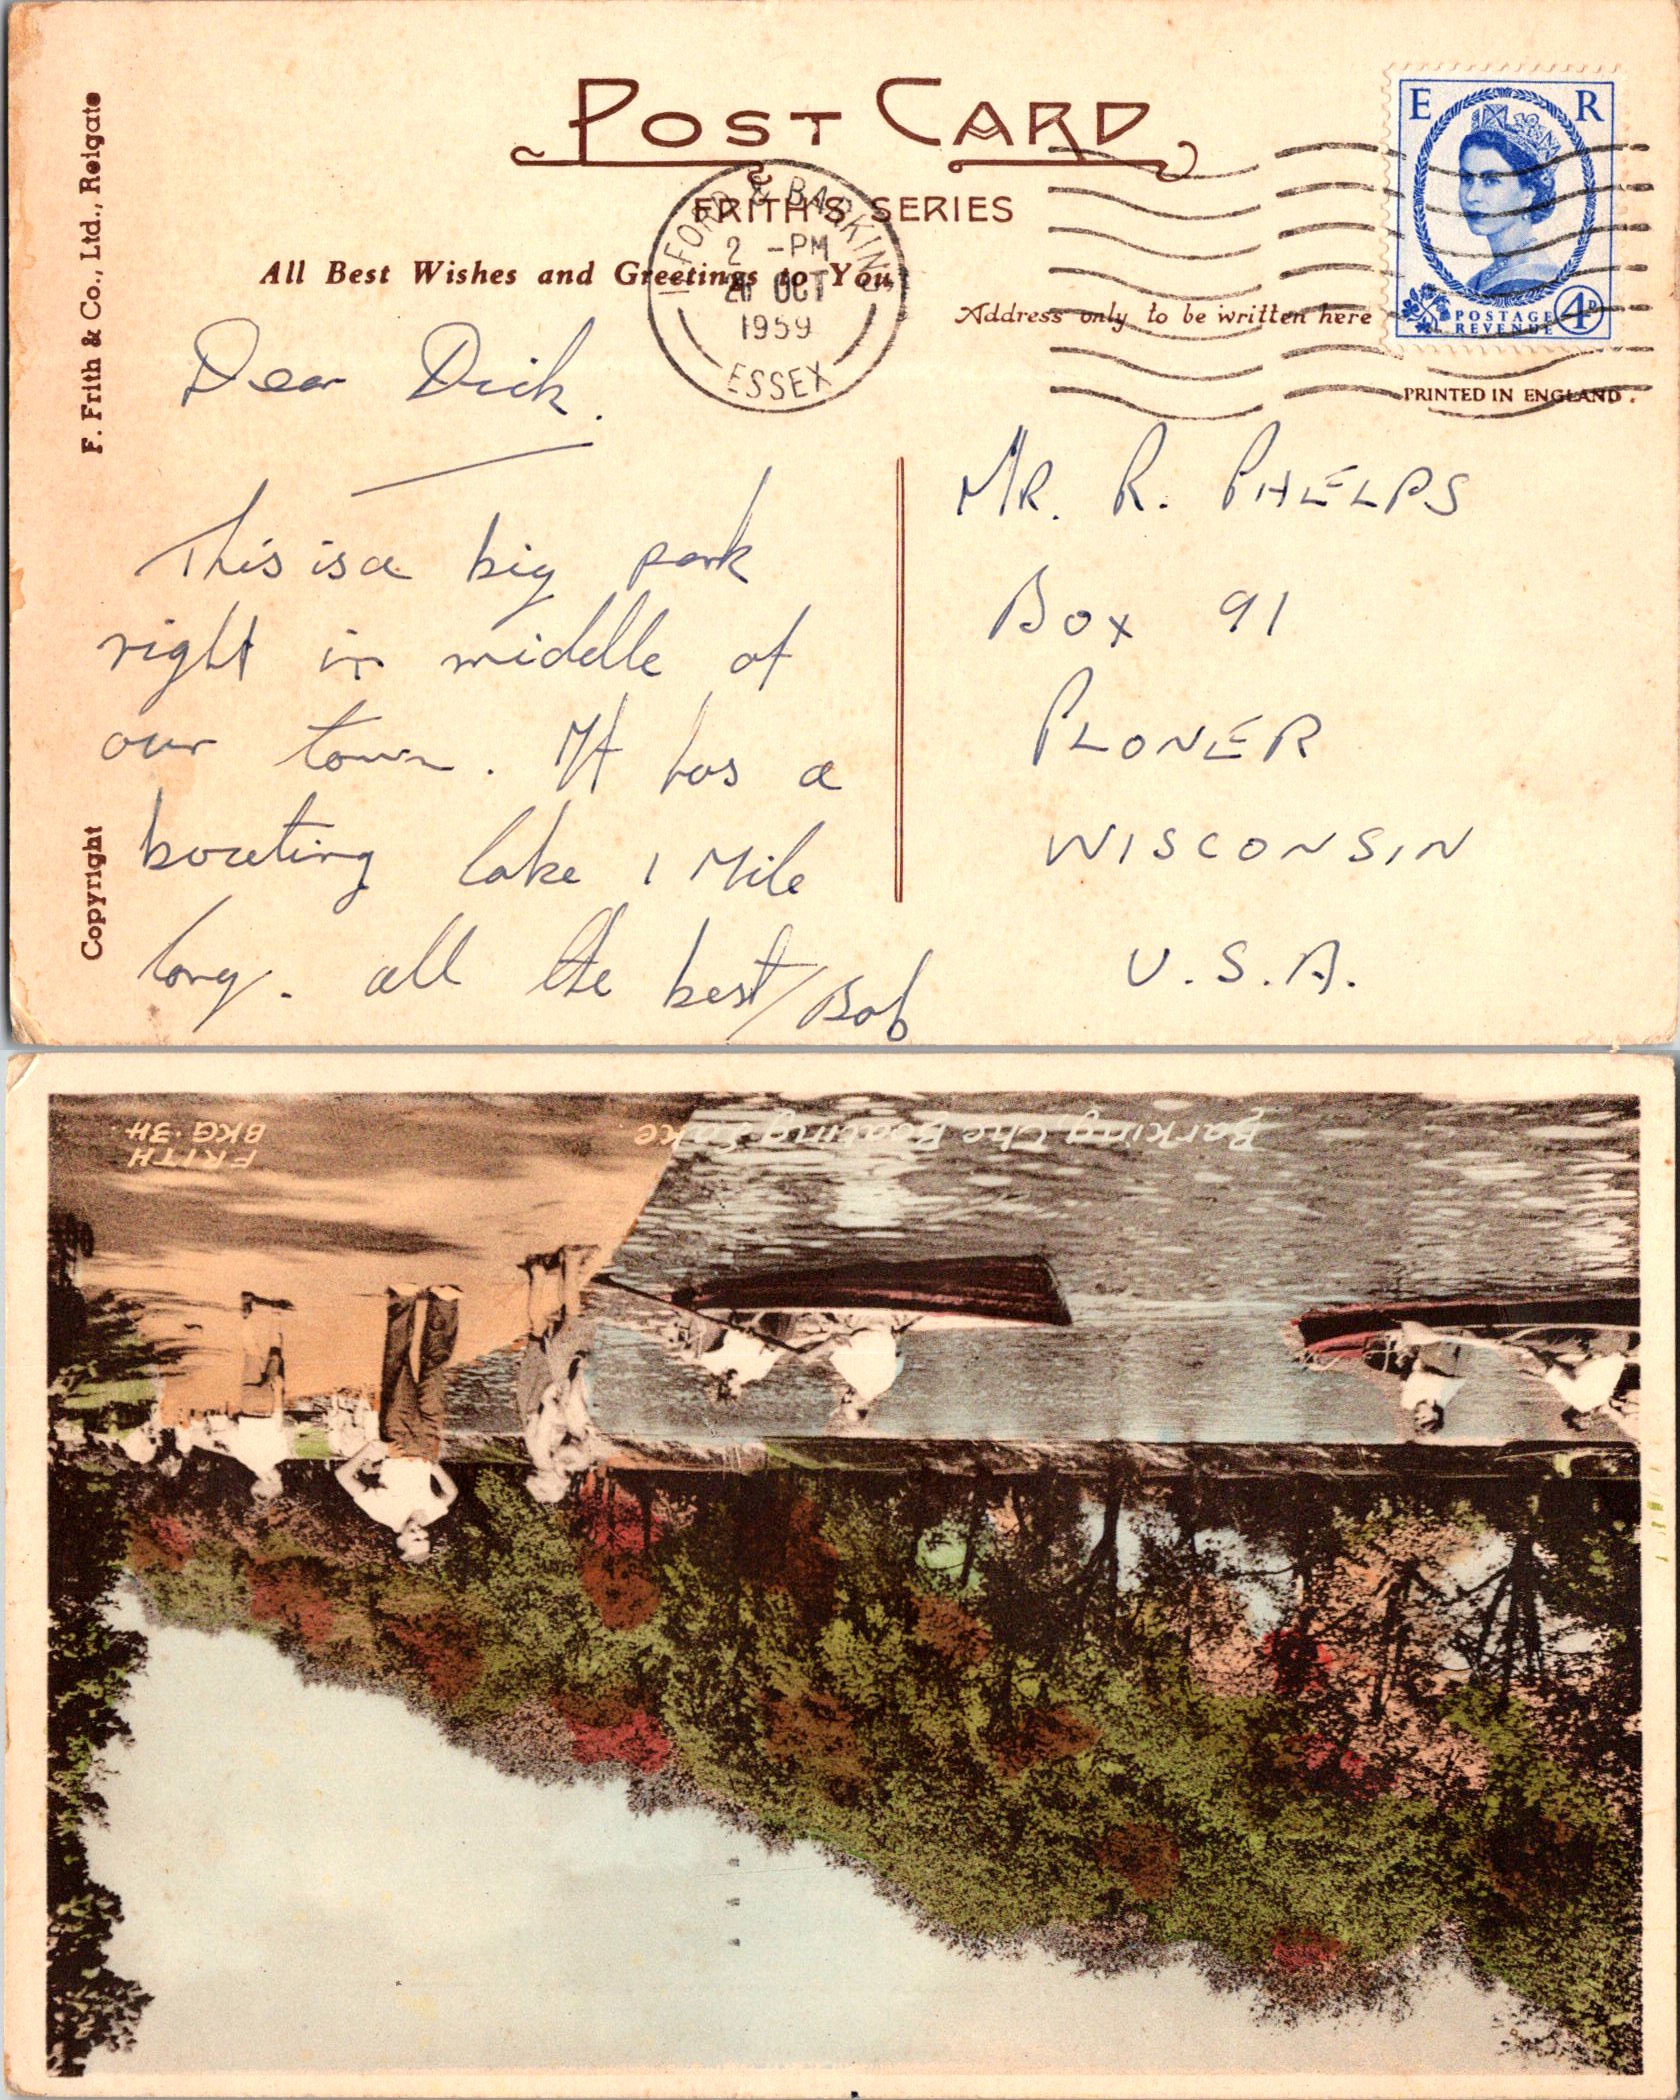 POST CARD
FRITH'S SERIES
All Best Wishes and Greetings to You
Address only to be written here
PRINTED IN ENGLAND.
F. Frith & Co., Ltd., Reigate
Copyright
E R
POSTAGE
REVENUE
4D
ILFORD & BARKING
2 -PM
OCT
1959
ESSEX
Dear Dick.
This is a big park
right in middle of
our town. It has a
boating lake 1 Mile
long. all the best/Bob
MR. R. PHELPS
BOX 91
PLONER
WISCONSIN
U.S.A.
Barking, The Boating Lake
FRITH
BKG.34